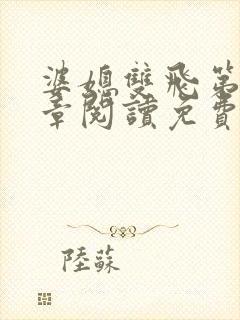 婆媳雙飛第
章閱讀免費
陸蘇